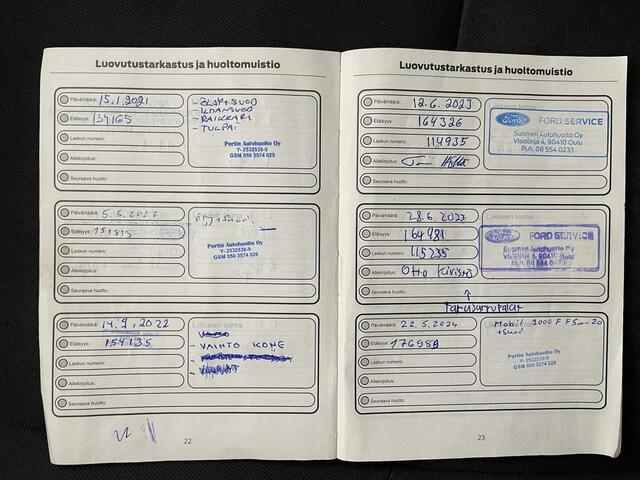 Luovutustarkastus ja huoltomuistio
Päivämäärä: 15.1.2021
Etäisyys: 134165
Laskun numero:
Allekirjoitus:
Seuraava huolto:
- ÖLJY+SUOD
- ILMANSUOD
- RAIKKARI
- TULPAT
Portin Autohuolto Oy
Y- 2532538-9
GSM 050 3574 028
Päivämäärä: 5.5.2022
Etäisyys:
Laskun numero:
Allekirjoitus:
Seuraava huolto:
Liikkeen leima
Öljy+suod.
Portin Autohuolto Oy
Y- 2532538-9
GSM 050 3574 028
Päivämäärä: 14.9.2022
Etäisyys: 154135
Laskun numero:
Allekirjoitus:
Seuraava huolto:
Liikkeen leima
- VAIHTO KONE
22
Luovutustarkastus ja huoltomuistio
Päivämäärä: 12.6.2023
Etäisyys: 164326
Laskun numero: 114935
Allekirjoitus:
Seuraava huolto:
Ford FORD SERVICE
Suomen Autohuolto Oy
Visiolinja 4, 90410 Oulu
Puh. 08 554 0233
Päivämäärä: 28.6.2023
Etäisyys: 164981
Laskun numero: 115235
Allekirjoitus: Otto
Seuraava huolto:
Liikkeen leima
Ford FORD SERVICE
Suomen Autohuolto Oy
Visiolinja 4, 90410 Oulu
Puh. 08 554 0233
Päivämäärä: 22.5.2024
Etäisyys:
Laskun numero:
Allekirjoitus:
Seuraava huolto:
Mobil 3000 F F 5w-20
+suod.
Portin Autohuolto Oy
Y- 2532538-9
GSM 050 3574 028
23